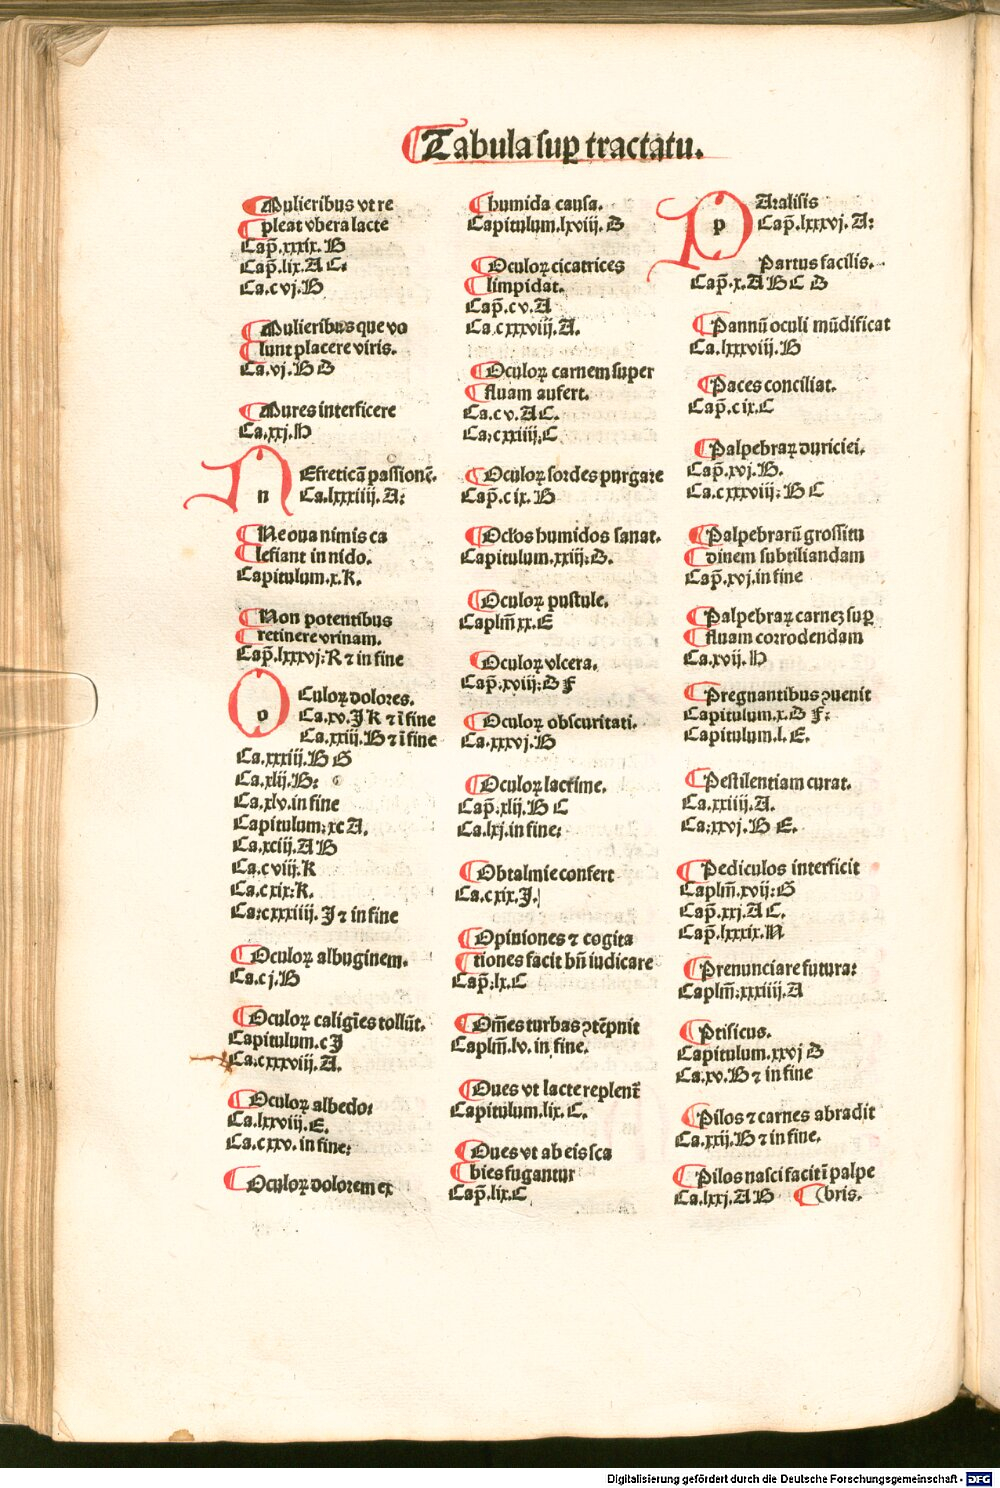 Tabula sup̱ tractatu.
Mulieribus vt re
pleat vbera lacte
Cap̄.xxxix.B
Cap̄.lix.A C.
Ca.cvj.B
Mulieribus que vo
lunt placere viris.
Ca.vj.B D
Mures interficere
Ca.xxj.H
n Efreticā passionē.
Ca.lxxxiiij.A.
Ne oua nimis ca
lefiant in nido.
Capitulum.x.K.
Non potentibus
retinere vrinam.
Cap̄.lxxxvj:R ⁊ in fine
o Culoꝝ dolores.
Ca.xv.J K ⁊ ī fine
Ca.xxiij.B ⁊ ī fine
Ca.xxxiij.B G
Ca.xlij.B:
Ca.xlv.in fine
Capitulum:xc A.
Ca.xciij.A B
Ca.cviij.K
Ca.cxix:K.
Ca:cxxxiiij.J ⁊ in fine
Oculoꝝ albuginem.
Ca.cj.B
Oculoꝝ caligīes tollūt.
Capitulum.cJ
Ca:cxxxviij.A.
Oculoꝝ albedo:
Ca.lxxviij.E.
Ca.cxxv.in fine:
Oculoꝝ dolorem ex
humida causa.
Capitulum.lxviij.D
Oculoꝝ cicatrices
limpidat.
Cap̄.cv.A
Ca.cxxxviij.A.
Oculoꝝ carnem super
fluam aufert.
Ca.cv.A C.
Ca:cxxiiij:C.
Oculoꝝ sordes purgare
Cap̄.cix.B
Oclos humidos sanat.
Capitulum.xxiij:D.
Oculoꝝ pustule.
Caplm̄.xx.E
Oculoꝝ vlcera.
Cap̄.xviij:D F
Oculoꝝ obscuritati.
Ca.xxxvj.B
Oculoꝝ lacrime.
Cap̄.xlij.B C
Ca.lxj.in fine:
Obtalmie confert
Ca.cxix.J.
Opiniones ⁊ cogita
tiones facit bn̄ iudicare
Cap̄:lx.C
Om̄es turbas ꝯtēpnit
Caplm̄.lv.in fine.
Oues vt lacte replent̄
Capitulum.lix.C.
Oues vt ab eis sca
bies fugantur
Cap̄.lix.C
p Aralisis
Cap̄.lxxxvj.A:
Partus facilis.
Cap̄.x.A B C D
Pannū oculi mūdificat
Ca.lxxxviij.B
Paces conciliat.
Cap̄.cix.C
Palpebraꝝ duriciei.
Cap̄.xvj.B.
Ca.cxxxviij:B C
Palpebrarū grossitu
dinem subtiliandam
Cap̄.xvj.in fine
Palpebraꝝ carneꝫ sup̱
fluam corrodendam
Ca.xvij.H
Pregnantibus ꝯuenit
Capitulum.x.D F:
Capitulum.l.E.
Pestilentiam curat.
Ca.xxiiij.A.
Ca:xxvj.B E.
Pediculos interficit
Caplm̄.xvij:G
Cap̄.xxj.A C.
Cap̄.lxxxix.N
Prenunciare futura:
Caplm̄:xxxiiij.A
Ptisicus.
Capitulum.xxvj D
Ca.xv.B ⁊ in fine
Pilos ⁊ carnes abradit
Ca.xxij.B ⁊ in fine.
Pilos nasci facit ī palpe
Ca.lxxj.A B (bris.
Digitalisierung gefördert durch die Deutsche Forschungsgemeinschaft - DFG